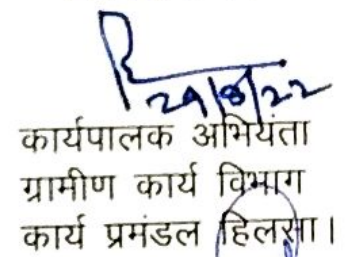 29/8/22
कार्यपालक अभियंता
ग्रामीण कार्य विभाग
कार्य प्रमंडल हिलसा।